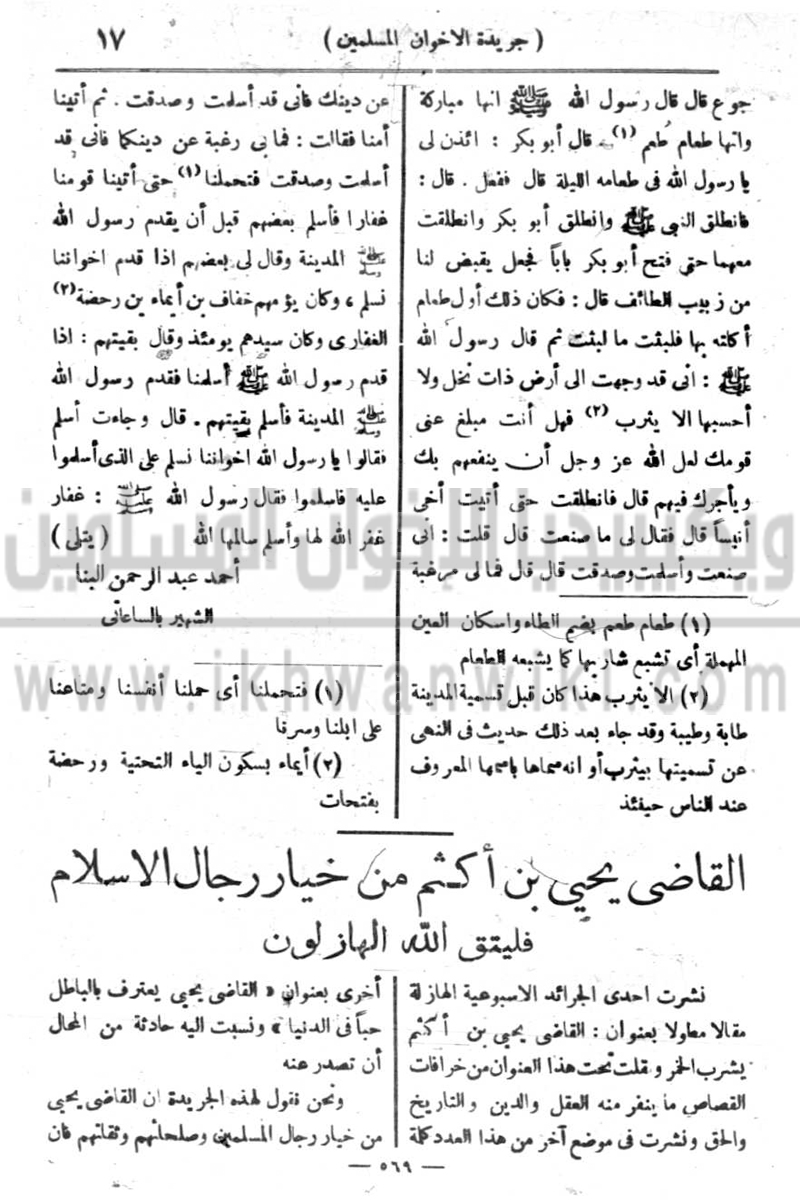 ( جريدة الاخوان المسلمين )
١٧
جوع قال قال رسول الله ﷺ انها مباركة
وانها طعام طعم (١) قال أبو بكر : ائذن لى
يا رسول الله فى طعامه الليلة قال ففعل . قال :
فانطلق النبى ﷺ وانطلق أبو بكر وانطلقت
معهما حتى فتح أبو بكر باباً فجعل يقبض لنا
من زبيب الطائف قال : فكان ذلك أول طعام
أكلته بها فلبثت ما لبثت ثم قال رسول الله
ﷺ : انى قد وجهت الى أرض ذات نخل ولا
أحسبها الا يثرب (٢) فهل أنت مبلغ عنى
قومك لعل الله عز وجل أن ينفعهم بك
ويأجرك فيهم قال فانطلقت حتى أتيت أخى
أنيساً قال فقال لى ما صنعت قال قلت : انى
صنعت وأسلمت وصدقت قال قال فما لى مرغبة
(١) طعام طعم بضم الطاء واسكان العين
المهملة أى تشبع شاربها كما يشبعه الطعام
(٢) الا يثرب هذا كان قبل تسمية المدينة
طابة وطيبة وقد جاء بعد ذلك حديث فى النهى
عن تسميتها بيثرب أو انه سماها باسمها المعروف
عند الناس حينئذ
عن دينك فانى قد أسلمت وصدقت . ثم أتينا
أمنا فقالت : فما بى رغبة عن دينكما فانى قد
أسلمت وصدقت فتحملنا (١) حتى أتينا قومنا
غفارا فأسلم بعضهم قبل أن يقدم رسول الله
ﷺ المدينة وقال لى بعضهم اذا قدم اخواننا
نسلم ، وكان يؤمهم خفاف بن أيماء بن رحضة (٢)
الغفارى وكان سيدهم يومئذ وقال بقيتهم : اذا
قدم رسول الله ﷺ أسلمنا فقدم رسول الله
ﷺ المدينة فأسلم بقيتهم . قال وجاءت أسلم
فقالوا يا رسول الله اخواننا نسلم على الذى أسلموا
عليه فاسلموا فقال رسول الله ﷺ : غفار
غفر الله لها وأسلم سالمها الله ( يتلى )
أحمد عبد الرحمن البنا
الشهير بالساعاتى
(١) فتحملنا أى حملنا أنفسنا ومتاعنا
على ابلنا وسرنا
(٢) أيماء بسكون الياء التحتية ورحضة
بفتحات
القاضى يحيى بن أكثم من خيار رجال الاسلام
فليتق الله الهازلون
نشرت احدى الجرائد الاسبوعية الهازلة
مقالا مطولا بعنوان : القاضى يحيى بن أكثم
يشرب الخمر ونقلت تحت هذا العنوان من خرافات
القصاص ما ينفر منه العقل والدين والتاريخ
والحق ونشرت فى موضع آخر من هذا العدد كلمة
أخرى بعنوان « القاضى يحيى يعترف بالباطل
حباً فى الدنيا » ونسبت اليه حادثة من المحال
أن تصدر عنه
ونحن نقول لهذه الجريدة ان القاضى يحيى
من خيار رجال المسلمين وصلحائهم وثقاتهم فان
— ٥٦٩ —
ويكيبيديا الإخوان المسلمين
www.ikhwanwiki.com